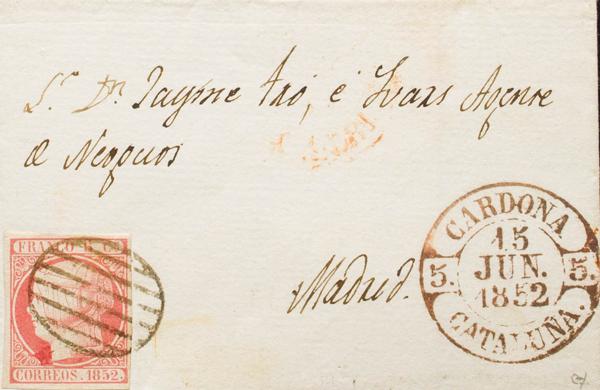 Sr. Dn. Jayme Iró, é Ivars Agente
de Negocios
Madrid.
FRANCO 6 Cs
CORREOS. 1852.
CARDONA
15
5. JUN. 5.
1852
CATALUÑA.